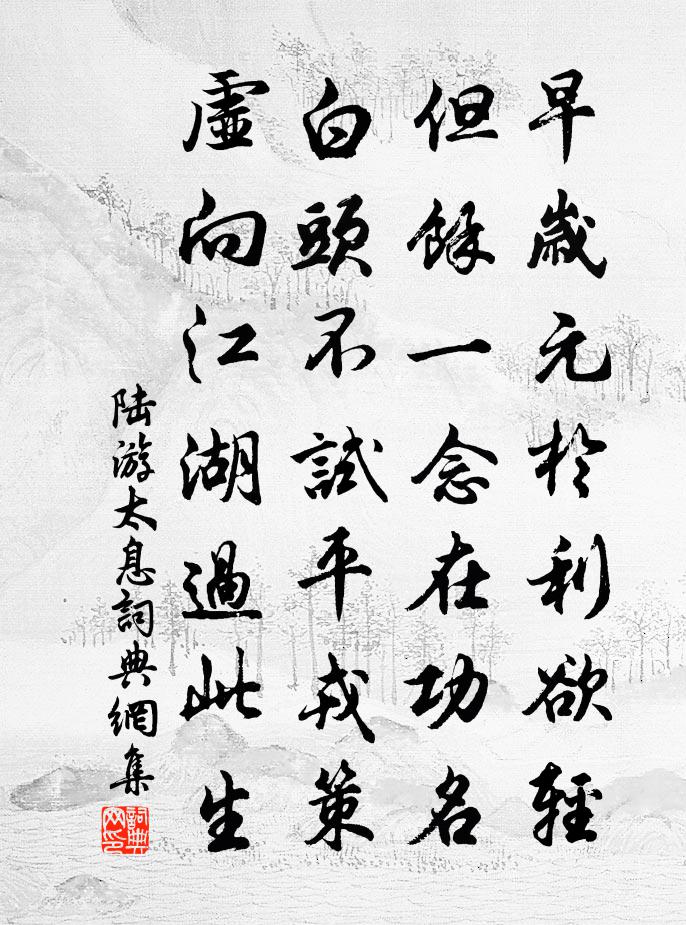 早歲元於利欲輕
但餘一念在功名
白頭不試平戎策
虛向江湖過此生
陆游太息詞典網集
詞典网印